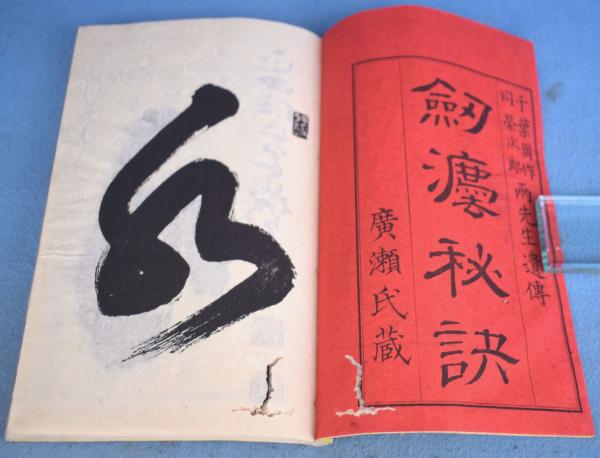 千葉周作
同榮次郎
兩先生遺傳
劔灋秘訣
廣瀬氏蔵